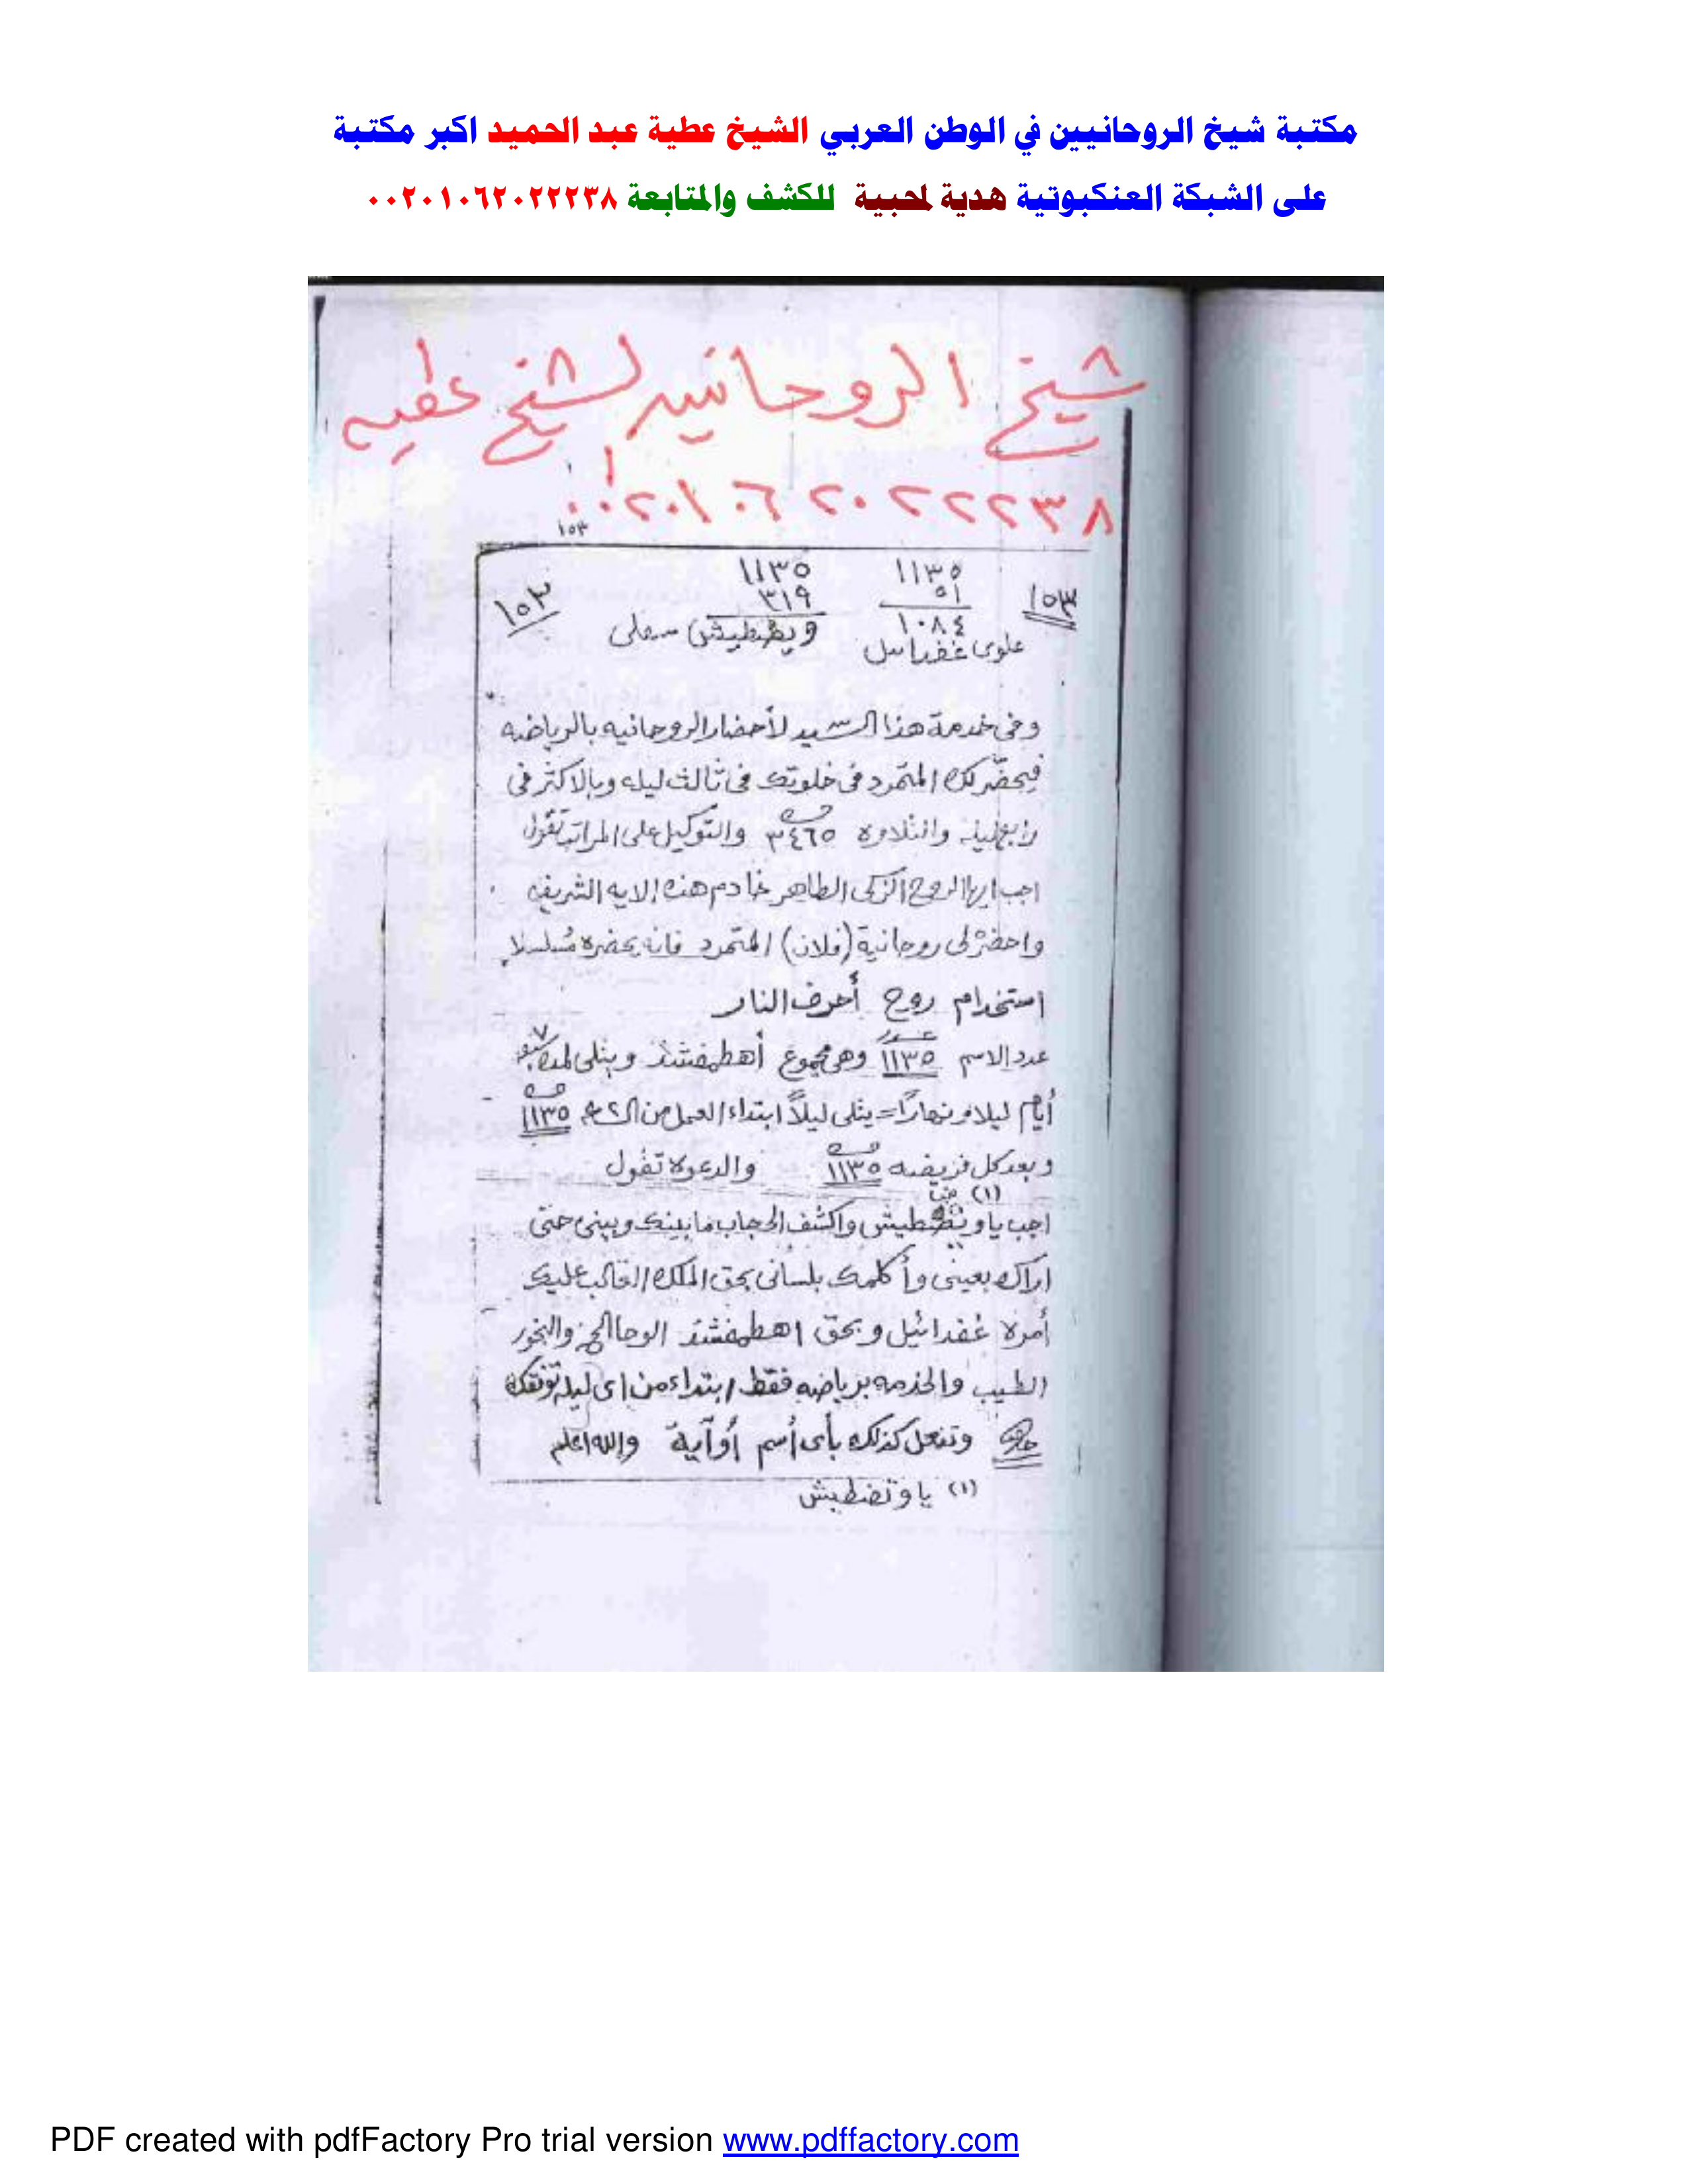 مكتبة شيخ الروحانيين في الوطن العربي الشيخ عطية عبد الحميد اكبر مكتبة
على الشبكة العنكبوتية هدية لمحبية للكشف والمتابعة ٠٠٢٠١٠٦٢٠٢٢٢٣٨
شيخ الروحانيين الشيخ عطيه
٠٠٢٠١٠٦٢٠٢٢٢٣٨
١٥٣
١٥٣ ١١٣٥ ١١٣٥ ١٥٣
٥١ ٣١٩
١٠٨٤ ويضطيش سفلى
علوى
وفى خدمة هذا لأحضار الروحانيه بالرياضه
فيحضّر لك المتمرد فى خلوتك فى ثالث ليله وبالاكثر فى
رابع ليله والتلاوه ٣٤٦٥ والتوكيل على المراتب تقول
اجب ايها الروح الزكى الطاهر خادم هذه الايه الشريفه
واحضرْ لى روحانية (فلان) المتمرد فانه يحضره مُسلسلا
استخدام روح أحرف النار
عدد الاسم ١١٣٥ وهى مجموع أهطمفشذ ويتلى لمدة ٧
أيام ليلا ونهارًا = يتلى ليلاً ابتداء العمل من ١١٣٥
وبعد كل فريضه ١١٣٥ والدعوة تقول
(١)
اجب يا واكشف الحجاب ما بينك وبينى حتى
اراك بعينى وأكلمك بلسانى بحق الملك الغالب عليك
أمره غفدائيل وبحق اهطمفشذ الوحا والبخور
الطيب والخدمه برياضه فقط ابتداء من اى ليله
وتفعل كذلك بأى أسم أو آية والله اعلم
(١) يا وتضطيش
PDF created with pdfFactory Pro trial version www.pdffactory.com